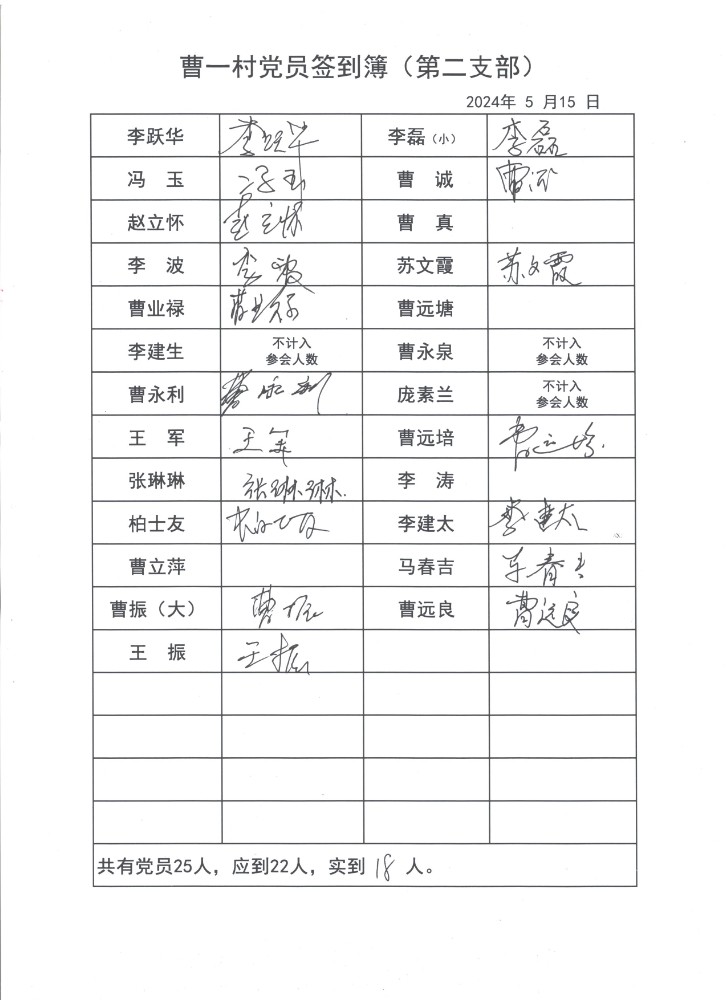 曹一村党员签到簿（第二支部）
2024年 5 月15 日
李跃华 李跃华 李磊（小） 李磊
冯 玉 冯玉 曹 诚 曹诚
赵立怀 赵立怀 曹 真
李 波 李波 苏文霞 苏文霞
曹业禄 曹业禄 曹远塘
李建生 不计入 曹永泉 不计入
参会人数 参会人数
曹永利 曹永利 庞素兰 不计入
参会人数
王 军 王军 曹远培 曹远培
张琳琳 张琳琳 李 涛
柏士友 柏士友 李建太 李建太
曹立萍 马春吉 马春吉
曹振（大） 曹振 曹远良 曹远良
王 振 王振
共有党员25人，应到22人，实到 18 人。